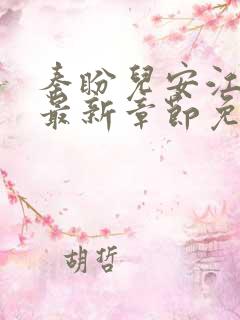 秦盼兒安江
最新章節免
胡哲